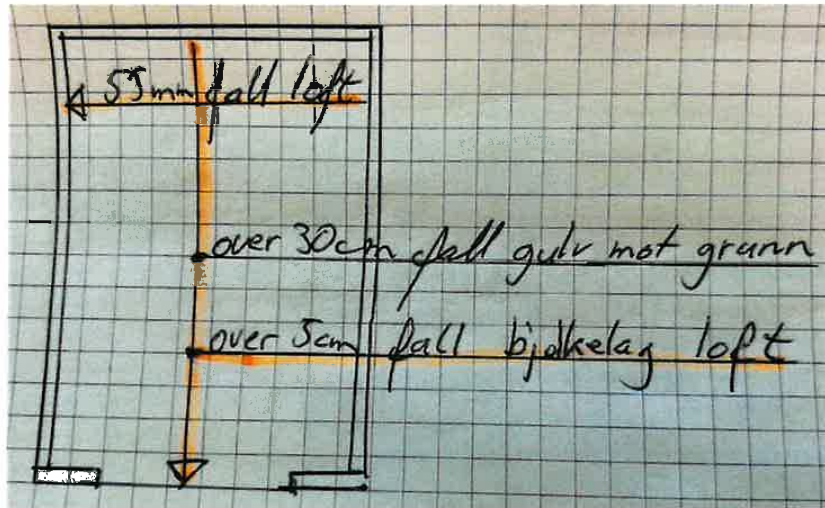 55mm fall loft
over 30cm fall gulv mot grunn
over 5cm fall bjelkelag loft